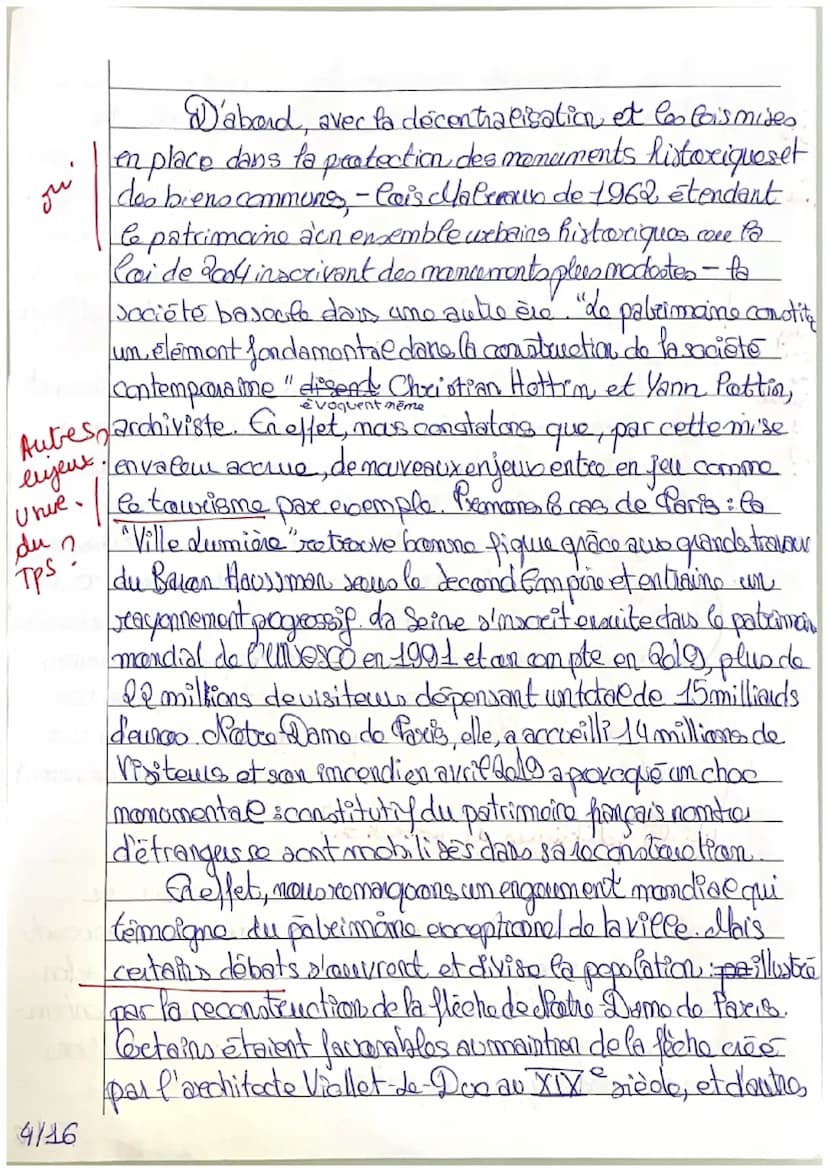 D'abord, avec la décentralisation, et les lois mises
oui
en place dans la protection des monuments historiques et
des biens communs, - lois Malraux de 1962 étendant
le patrimoine à un ensemble urbains historiques ou la
loi de 2004 inscrivant des monuments plus modestes - la
société bascule dans une autre ère. "Le patrimoine constitu
un élément fondamental dans la construction de la société
contemporaine" disent Christian Hottin et Yann Pottin,
évoquent même
archiviste. En effet, nous constatons que, par cette mise
Autres
enjeux
vue
du
TPS ?
en valeur accrue, de nouveaux enjeux entre en jeu comme
le tourisme par exemple. Prenons le cas de Paris : la
"Ville Lumière" retrouve bonne figue grâce aux grands travaux
du Baron Haussman sous le Second Empire et entraine un
rayonnement progressif. La Seine s'inscrit ensuite dans le patrimoin
mondial de l'UNESCO en 1991 et on compte en 2019, plus de
22 millions de visiteurs dépensant un total de 15 milliards
d'euros. Notre-Dame de Paris, elle, a accueilli 14 millions de
visiteurs et son incendie en avril 2019 a provoqué un choc
monumental : constitutif du patrimoine français nombre
d'étrangers se sont mobilisés dans sa reconstruction.
En effet, nous remarquons un engouement mondial qui
témoigne du patrimoine exceptionnel de la ville. Mais
certains débats s'ouvrent et divise la population : illustré
par la reconstruction de la flèche de Notre-Dame de Paris.
Certains étaient favorables au maintien de la flèche créé
par l'architecte Viollet-le-Duc au XIXe siècle, et d'autres
4/16